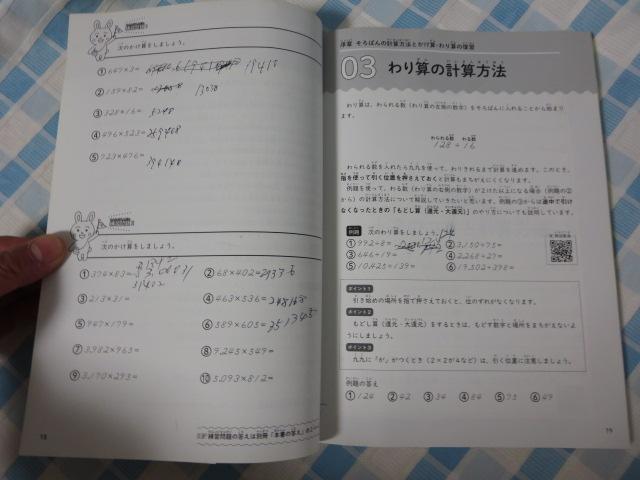 次のかけ算をしましょう。
① 647×3=
② 159×82=
③ 328×16= 5248
④ 496×523=
⑤ 723×476=
次のかけ算をしましょう。
① 394×83=
② 68×402=
③ 213×31=
④ 463×536=
⑤ 947×179=
⑥ 589×605=
⑦ 3,982×965=
⑧ 9,245×549=
⑨ 3,170×293=
⑩ 5,093×812=
18
序章 そろばんの計算方法とかけ算・わり算の復習
03 わり算の計算方法
わり算は、わられる数(わり算の左側の数字)をそろばんに入れることから始まります。
わられる数 わる数
128÷16
わられる数を入れたら九九を使って、わりきれるまで計算を進めます。このとき、
指を使って引く位置を押さえておくと計算もまちがえにくくなります。
例題を使って、わる数(わり算の右側の数字)が2けた以上になる場合(例題の②
から)の計算方法について解説していきたいと思います。例題の③からは途中で引け
なくなったときの「もどし算(還元・大還元)」のやり方についても説明しています。
例題 次のわり算をしましょう。 124
① 992÷8=
② 3,150÷75=
③ 646÷19=
④ 2,268÷27=
⑤ 10,425÷139=
⑥ 19,502÷398=
ポイント1
引き始めの場所を指で押さえておくと、位のずれがなくなります。
ポイント2
もどし算(還元・大還元)をするときは、もどす数字と場所をまちがえないよ
うにしましょう。
ポイント3
九九に「が」がつくとき(2×2が4など)は、引く位置に注意しましょう。
例題の答え
① 124 ② 42 ③ 34 ④ 84 ⑤ 75 ⑥ 49
19